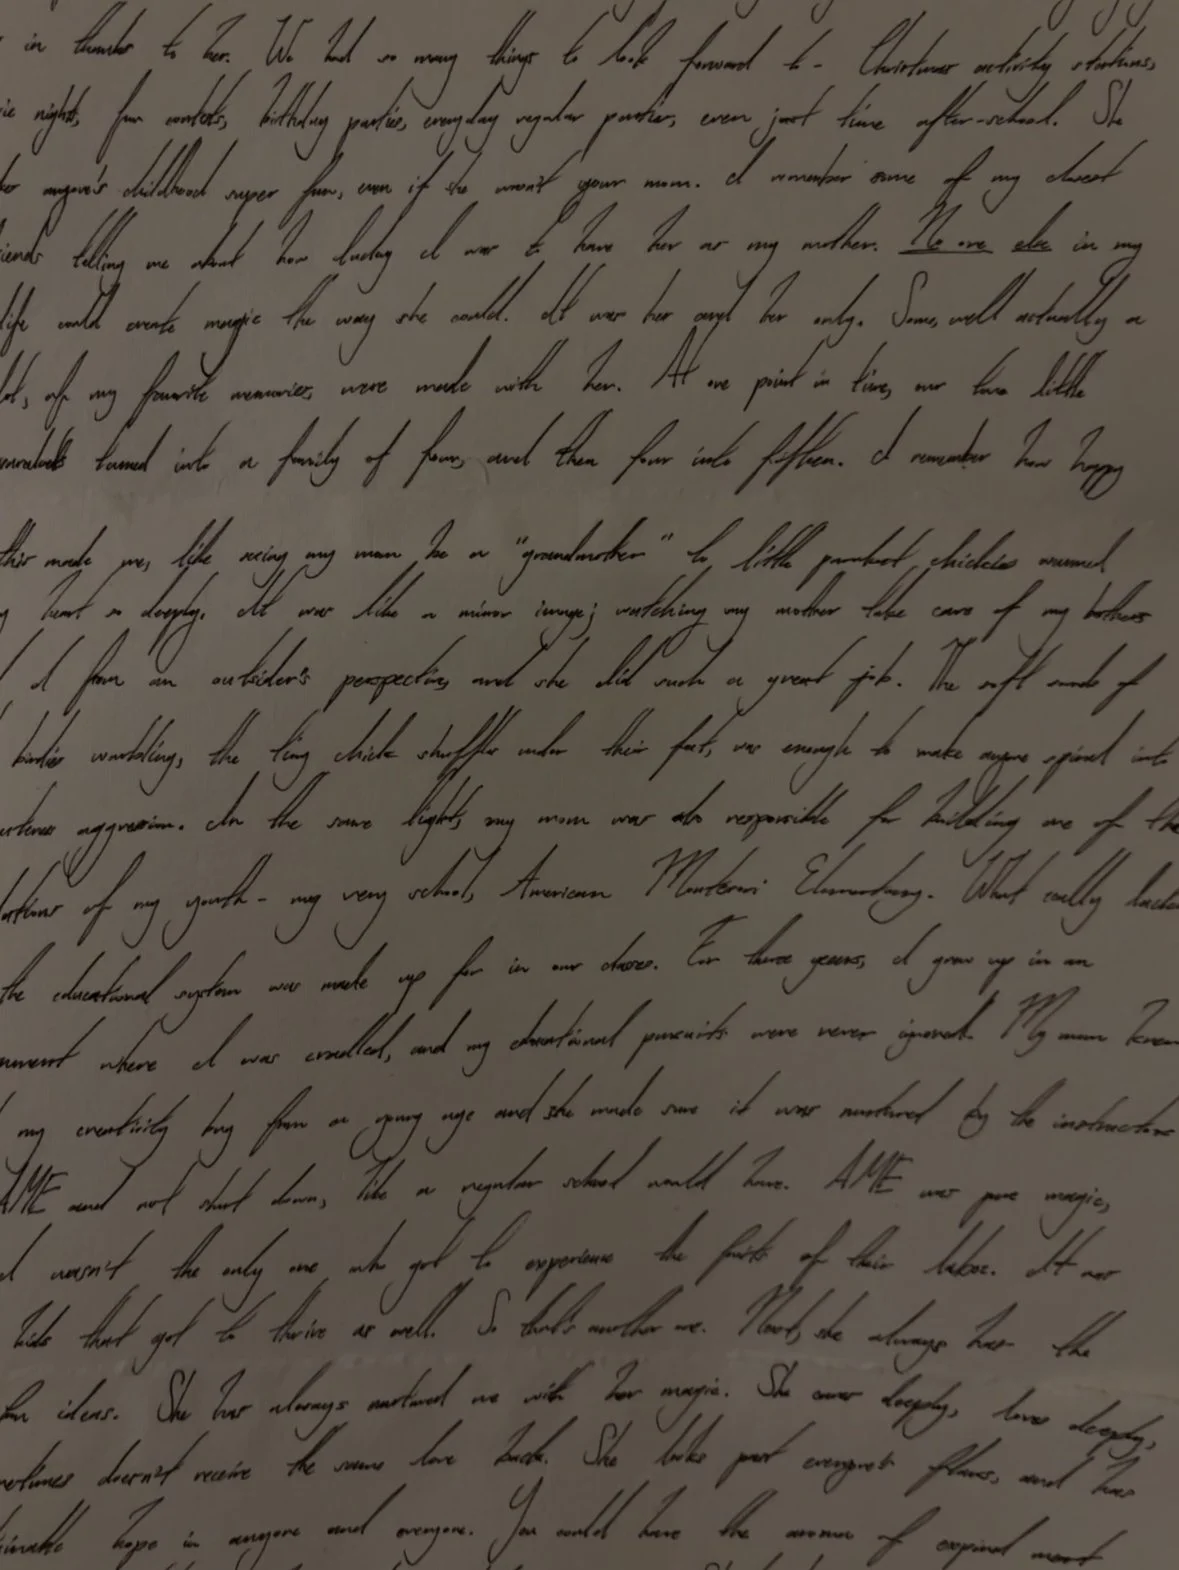 in thanks to her. We had so many things to look forward to - Christmas activity stations,
nights, fun contests, birthday parties, everyday regular parties, even just time after-school. She
anyone's childhood super fun, even if she wasn't your mom. I remember some of my closest
friends telling me about how lucky I was to have her as my mother. No one else in my
life could create magic the way she could. It was her and her only. Some, well actually a
lot, of my favorite memories, were made with her. At one point in time, our two little
turned into a family of four, and then four into fifteen. I remember how happy
this made me, like seeing my mom be a "grandmother" to little parakeet chickies warmed
my heart so deeply. It was like a mirror image; watching my mother take care of my brothers
I from an outsider's perspective, and she did such a great job. The soft sounds of
birdies warbling, the tiny chick shuffles under their feet, was enough to make anyone spiral into
aggression. In the same light, my mom was also responsible for building one of the
of my youth - my very school, American Montessori Elementary. What really lacked
the educational system was made up for in our classes. For three years, I grew up in an
where I was cradled, and my educational pursuits were never ignored. My mom knew
my creativity bug from a young age and she made sure it was nurtured by the instructors
AME and not shut down, like a regular school would have. AME was pure magic,
I wasn't the only one who got to experience the fruits of their labor. It was
kids that got to thrive as well. So that's another one. Next, she always has the
fun ideas. She has always nurtured me with her magic. She cares deeply, loves deeply,
sometimes doesn't receive the same love back. She looks past everyone's flaws, and has
hope in anyone and everyone. You could have the aroma of expired meat